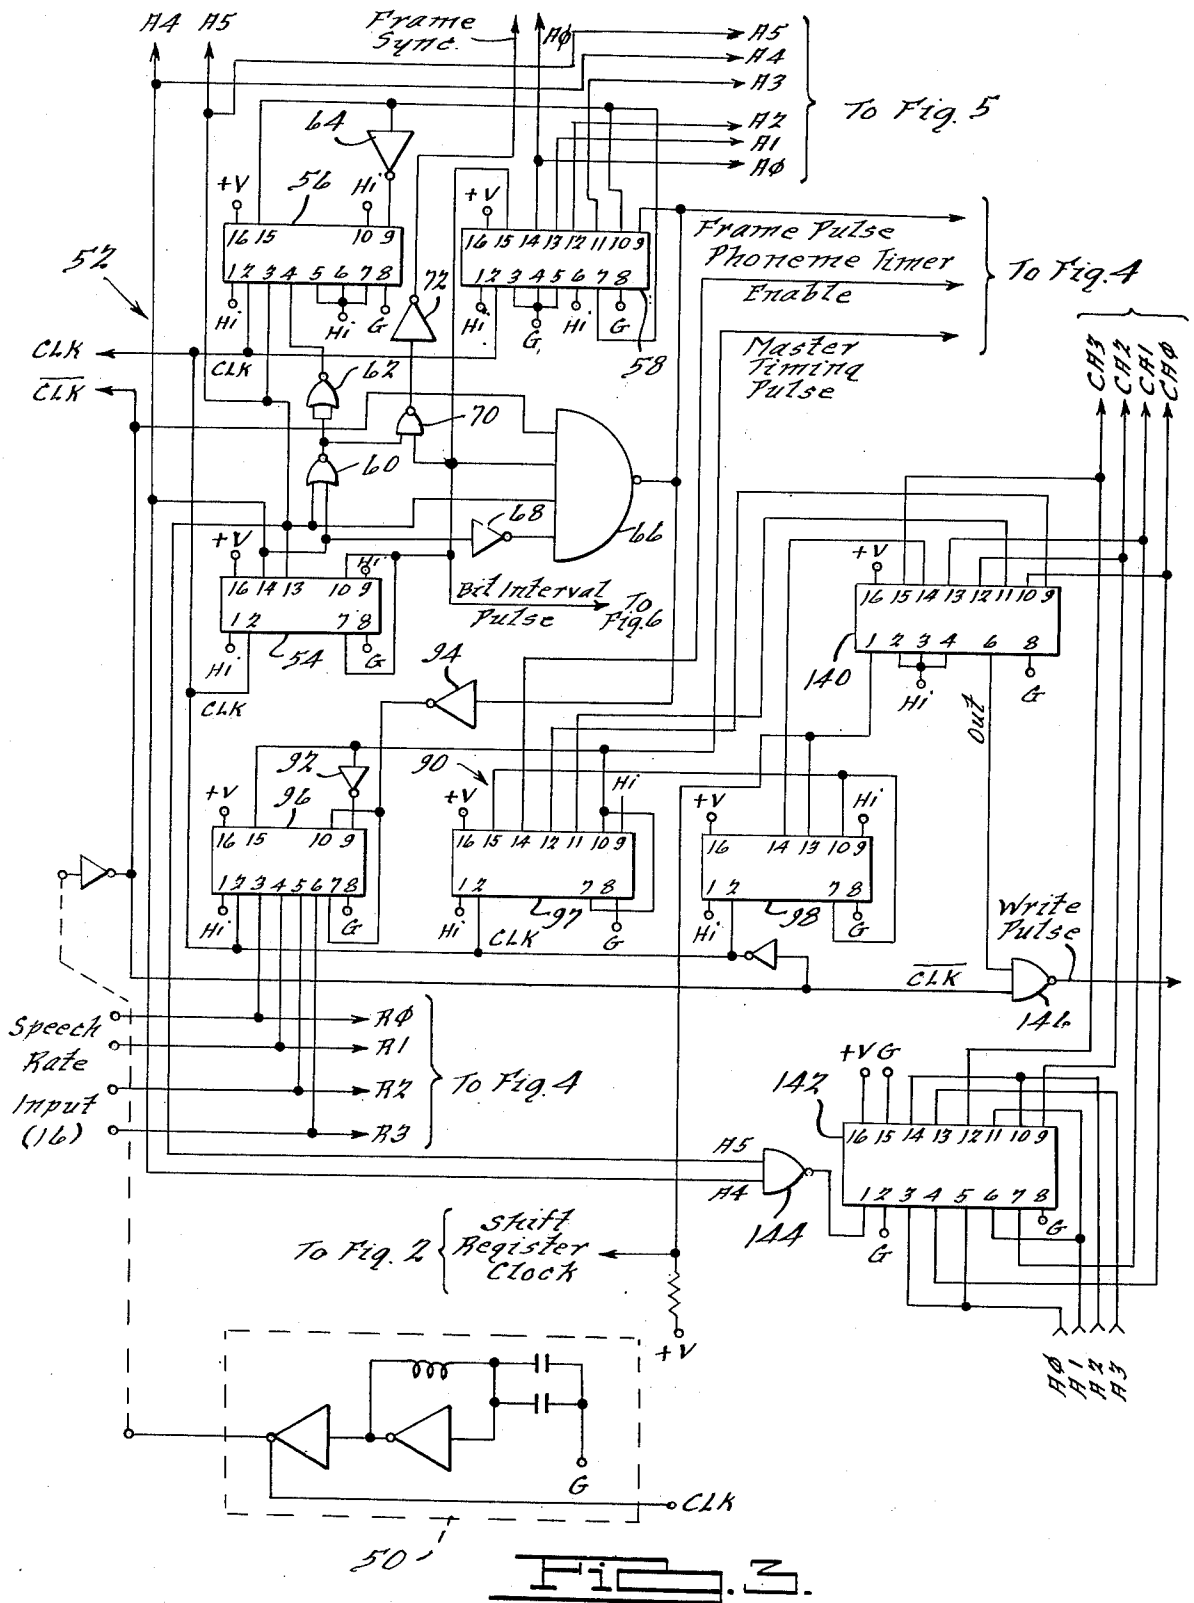 A4 A5 Frame Sync. AØ
A5
A4
A3
A2
A1
AØ
To Fig. 5
64
56
+V
Hi
16 15 10 9
1 2 3 4 5 6 7 8
Hi
Hi
G
+V
16 15 14 13 12 11 10 9
1 2 3 4 5 6 7 8
Hi
G
Hi
G
58
72
52
Frame Pulse
Phoneme Timer
Enable
Master
Timing
Pulse
To Fig. 4
CLK
CLK
CLK
62
70
60
68
66
CA3
CA2
CA1
CAØ
+V
Hi
16 14 13 10 9
1 2 7 8
Hi
54
G
CLK
Bit Interval
Pulse
To
Fig. 6
+V
16 15 14 13 12 11 10 9
1 2 3 4 6 8
140
Hi
Out
G
94
92
96
90
+V
16 15 10 9
1 2 3 4 5 6 7 8
Hi
G
+V
Hi
16 15 14 12 11 10 9
1 2 7 8
Hi
97
CLK
G
+V
Hi
16 14 13 10 9
1 2 7 8
Hi
98
G
CLK
Write
Pulse
146
Speech
Rate
Input
(16)
RØ
R1
R2
R3
To Fig. 4
+V G
142
16 15 14 13 12 11 10 9
1 2 3 4 5 6 7 8
G
G
A5
A4
144
To Fig. 2
Shift
Register
Clock
+V
AØ
A1
A2
A3
G
CLK
50
Fig. 3.